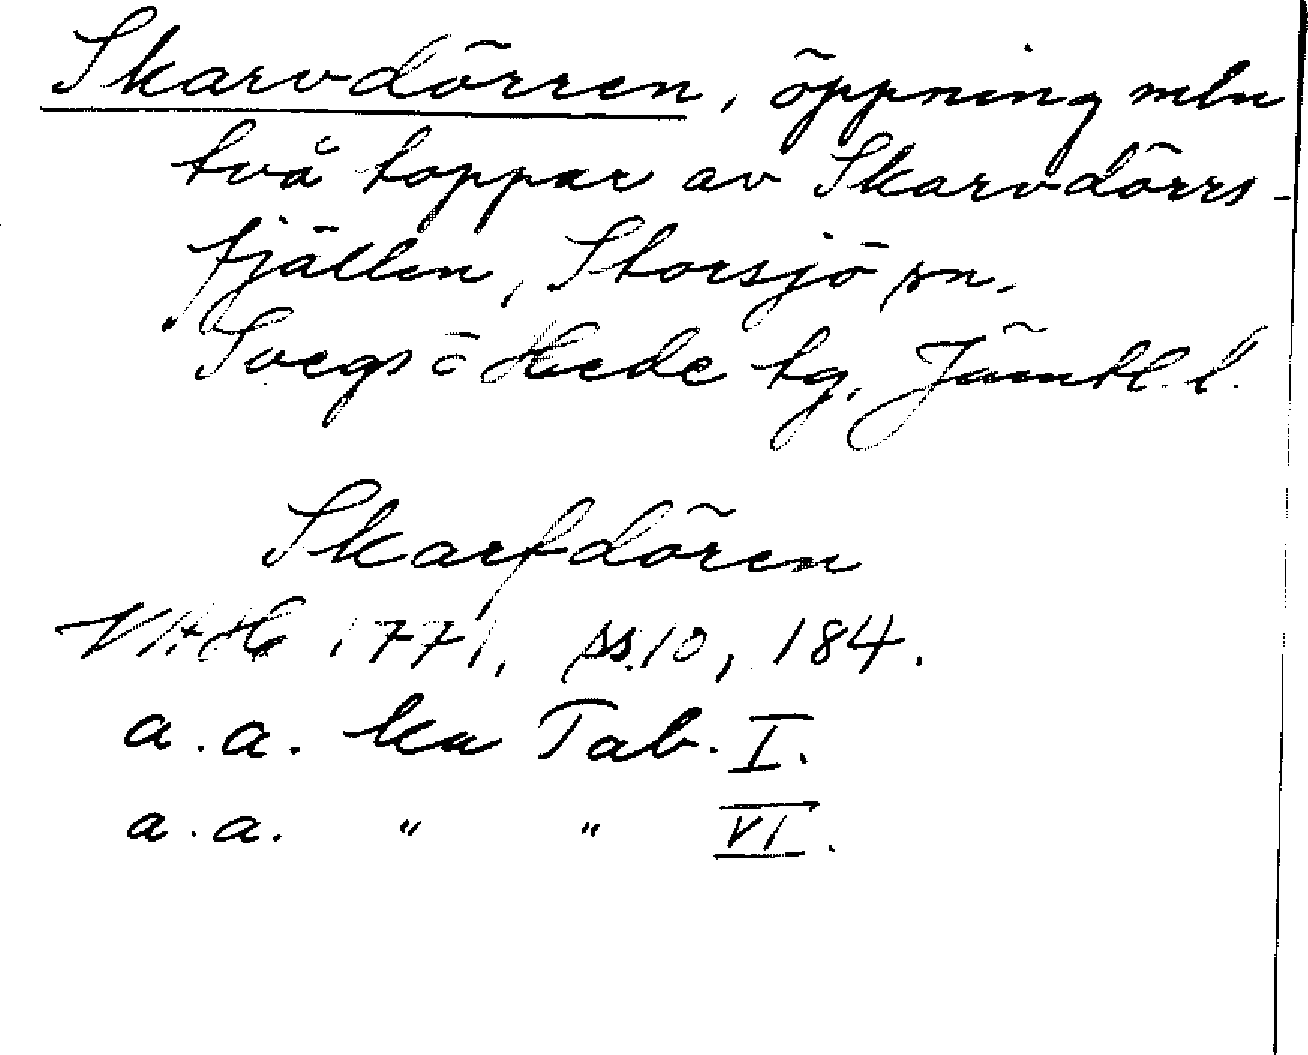 Skarvdörren, öppning mln
två toppar av Skarvdörrs-
fjällen, Storsjö sn.
Svegs o Hede tg. Jämtl. l.
Skarfdören
VAH 1771, ss. 10, 184.
a.a. ka Tab. I.
a.a. " " VI.